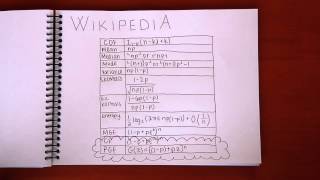 WIKIPEDIA
CDF I₁₋ₚ(n-k,1+k)
Mean np
Median
Mode
Variance np(1-p)
Skewness 1-2p
√np(1-p)
Ex. kurtosis 1-6p(1-p)
np(1-p)
Entropy ½ log₂ (2πe np(1-p)) + O(1/n)
MGF (1-p+peᵗ)ⁿ
CF
PGF G(z)=[(1-p)+pz]ⁿ